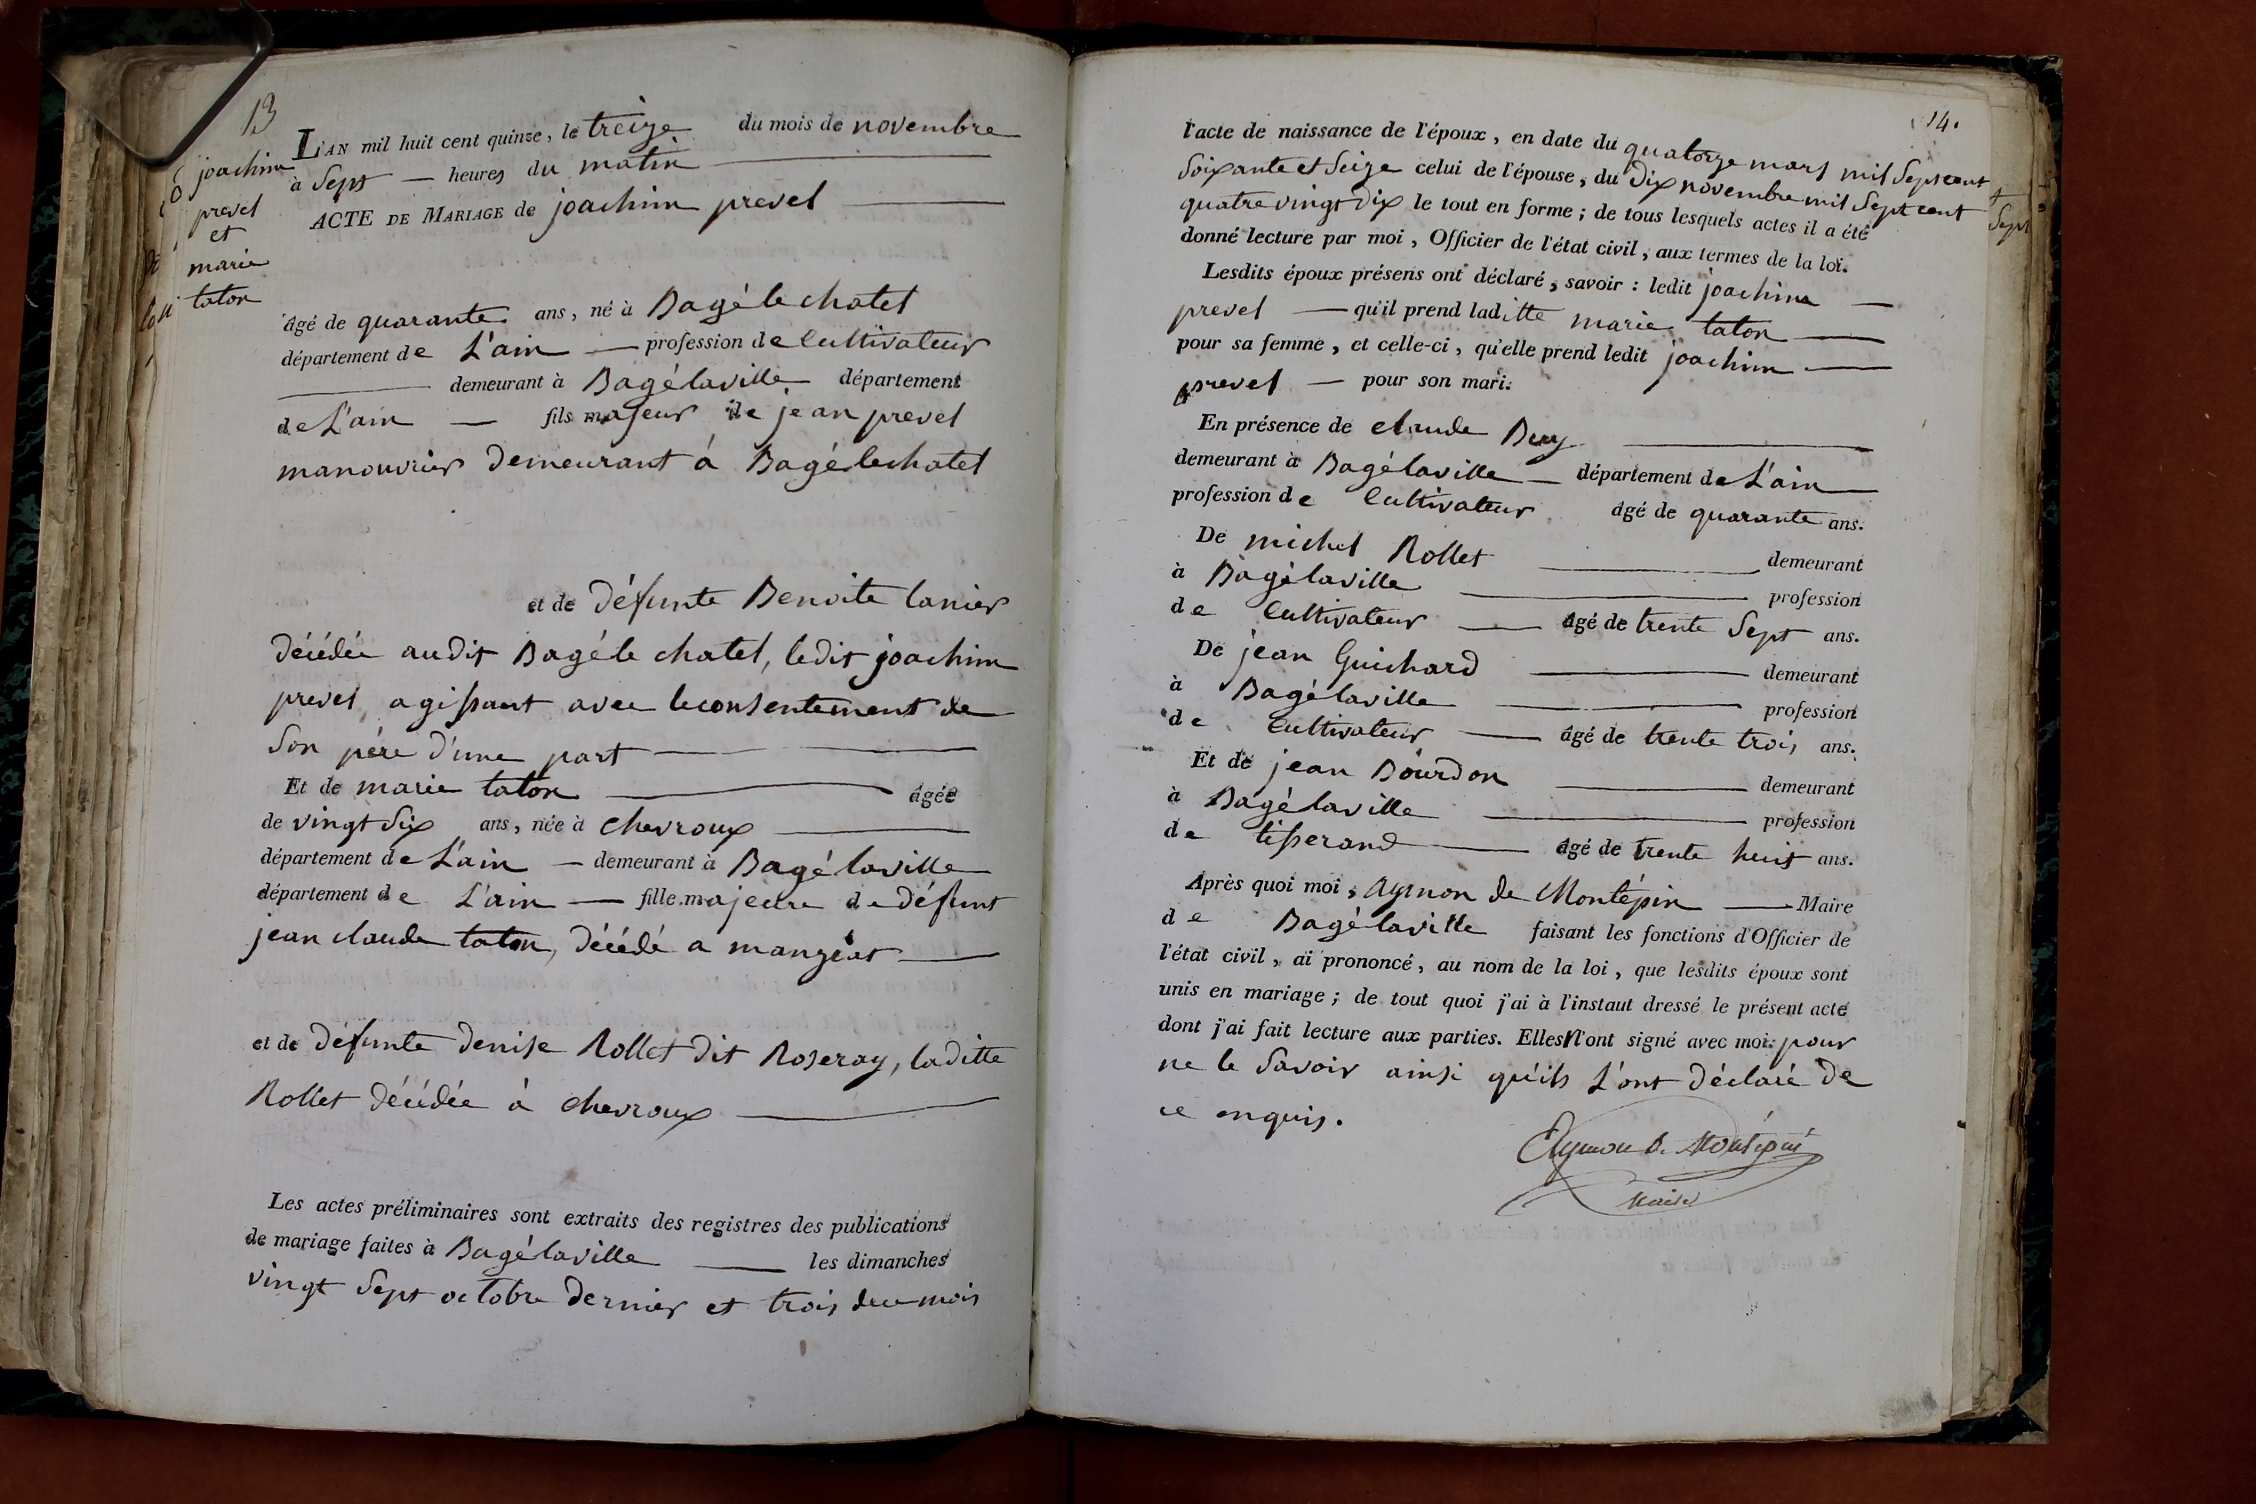 13
joachim
prevel
et
marie
taton
L'AN mil huit cent quinze, le treize du mois de novembre
à Sept — heures du matin
ACTE DE MARIAGE de joachim prevel
âgé de quarante ans, né à Bagé le chatel
département de L'ain — profession de Cultivateur
demeurant à Bagé laville département
de L'ain — fils majeur de jean prevel
manouvrier demeurant á Bagé lechatel
et de défunte Benoite lanier
décédée audit Bagé le chatel, ledit joachim
prevel agissant avec leconsentement de
Son pére d'une part
Et de marie taton âgée
de vingt Six ans, née à chevroux
département de L'ain — demeurant à Bagé laville
département de L'ain — fille majeure de défunt
jean claude taton, décédé a mangéat
et de défunte denise Rollet dit Roseray, laditte
Rollet décédée à chevroux
Les actes préliminaires sont extraits des registres des publications
de mariage faites à Bagé laville — les dimanches
vingt Sept octobre dernier et trois du mois
14.
l'acte de naissance de l'époux, en date du quatorze mars mil Sept cent
Soixante et Seize celui de l'épouse, du dix novembre mil Sept cent
+ Sept
quatre vingt Dix le tout en forme; de tous lesquels actes il a été
donné lecture par moi, Officier de l'état civil, aux termes de la loi.
Lesdits époux présens ont déclaré, savoir : ledit joachim —
prevel — qu'il prend laditte marie taton
pour sa femme, et celle-ci, qu'elle prend ledit joachim —
prevel — pour son mari.
En présence de claude Buy
demeurant à Bagé laville — département de L'ain
profession de Cultivateur âgé de quarante ans.
De michel Rollet demeurant
à Bagé laville profession
de Cultivateur — âgé de trente Sept ans.
De jean Guichard demeurant
à Bagé laville profession
de Cultivateur — âgé de trente trois ans.
Et de jean Bourdon demeurant
à Bagé laville profession
de tisserand — âgé de trente huit ans.
Après quoi moi, Aymon de Montépin — Maire
de Bagé laville faisant les fonctions d'Officier de
l'état civil, ai prononcé, au nom de la loi, que lesdits époux sont
unis en mariage; de tout quoi j'ai à l'instant dressé le présent acte
dont j'ai fait lecture aux parties. Elles n'ont signé avec moi. pour
ne le Savoir ainsi qu'ils L'ont déclaré de
ce enquis.
Aymon D. Montépin
Maire